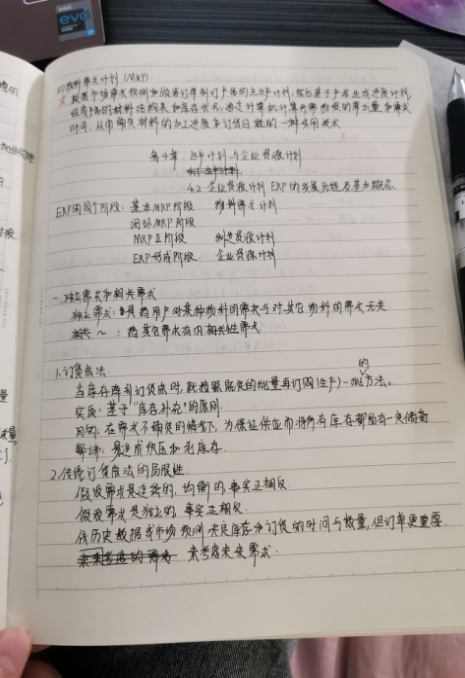 intel
evo
(1)物料需求计划(MRP)
根据市场需求预测和顾客订单制订产品的生产计划,然后基于产品生成进度计划,
组成产品的材料结构表和库存状况,通过计算机计算所需物资的需求量和需求
时间,从而确定材料的加工进度和订货日程的一种实用技术
第4章 生产计划与企业资源计划
4.2 企业资源计划ERP的发展历程及基本概念
ERP四个阶段:基本MRP阶段 物料需求计划
闭环MRP阶段
MRPⅡ阶段 制造资源计划
ERP形成阶段 企业资源计划
一.独立需求和相关需求
独立需求:是指用户对某种物料的需求与对其它物料的需求无关.
相关~:指其它需求有内在相关性需求
1.订货点法.
的
当库存降到订货点时,就按照既定的批量再订购(生产)一批方法。
实质:基于"库存补充"的原则.
目的:在需求不确定的情况下,为保证供应而将所有库存都留有一定储备
弊端:易造成积压和死库存.
2.传统订货点法的局限性.
假设需求是连续的,均衡的,事实正相反.
假设需求是独立的,事实正相反.
依历史数据或市场预测来决定库存和订货的时间与数量,但订单更重要.
未考虑未来需求.